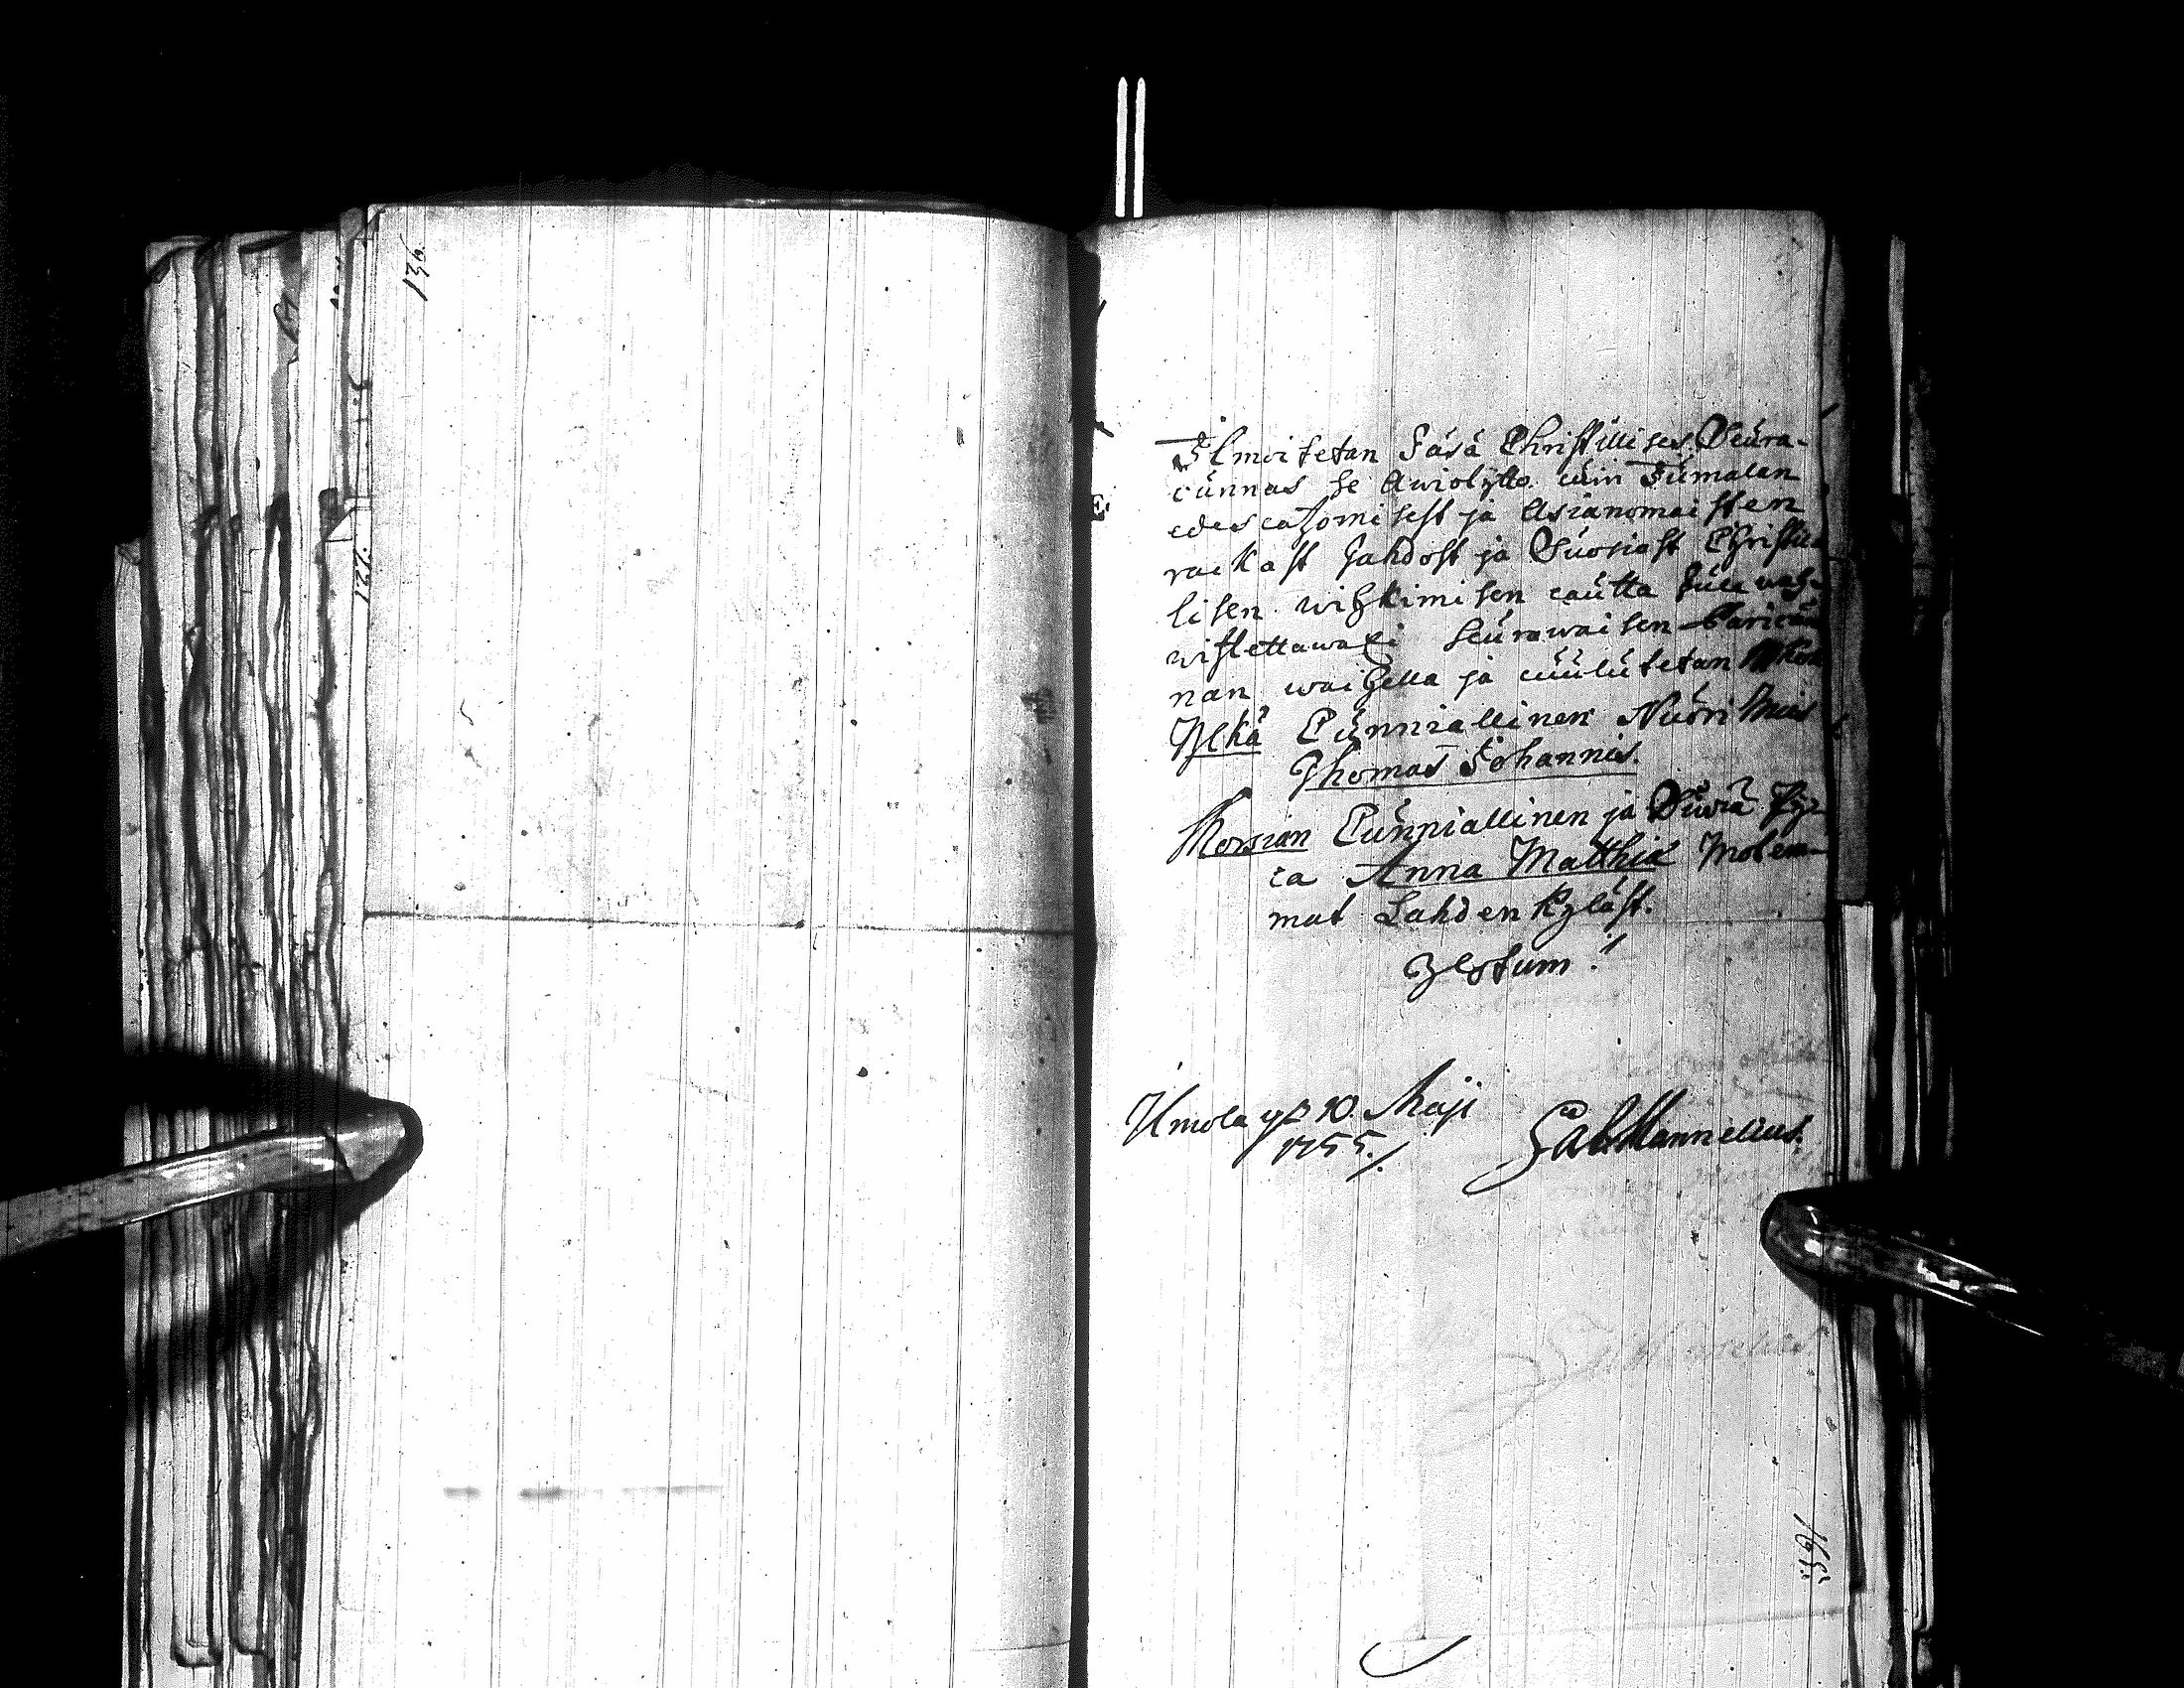 136.
127.
Ilmoitetan Täsä Christillises Seura-
cunnas se Awiolijtto cuin Jumalan
edescatzomisest ja Asianomaisten
rackast tahdost ja Suosiost Christil-
lisen wihkimisen cautta tule wah-
wistettawaxi Seurawaisen
nan waihella ja cuulutetan
Ylkä Cunniallinen Nuori Mies
Thomas Johannis.
Morsian Cunniallinen ja Siwiä Py-
ca Anna Matthiæ Molem-
mat Lahden Kyläst.
Gestum!
Kimola yp 10. Maji
1755./.
Gab. Mannelius.
165.